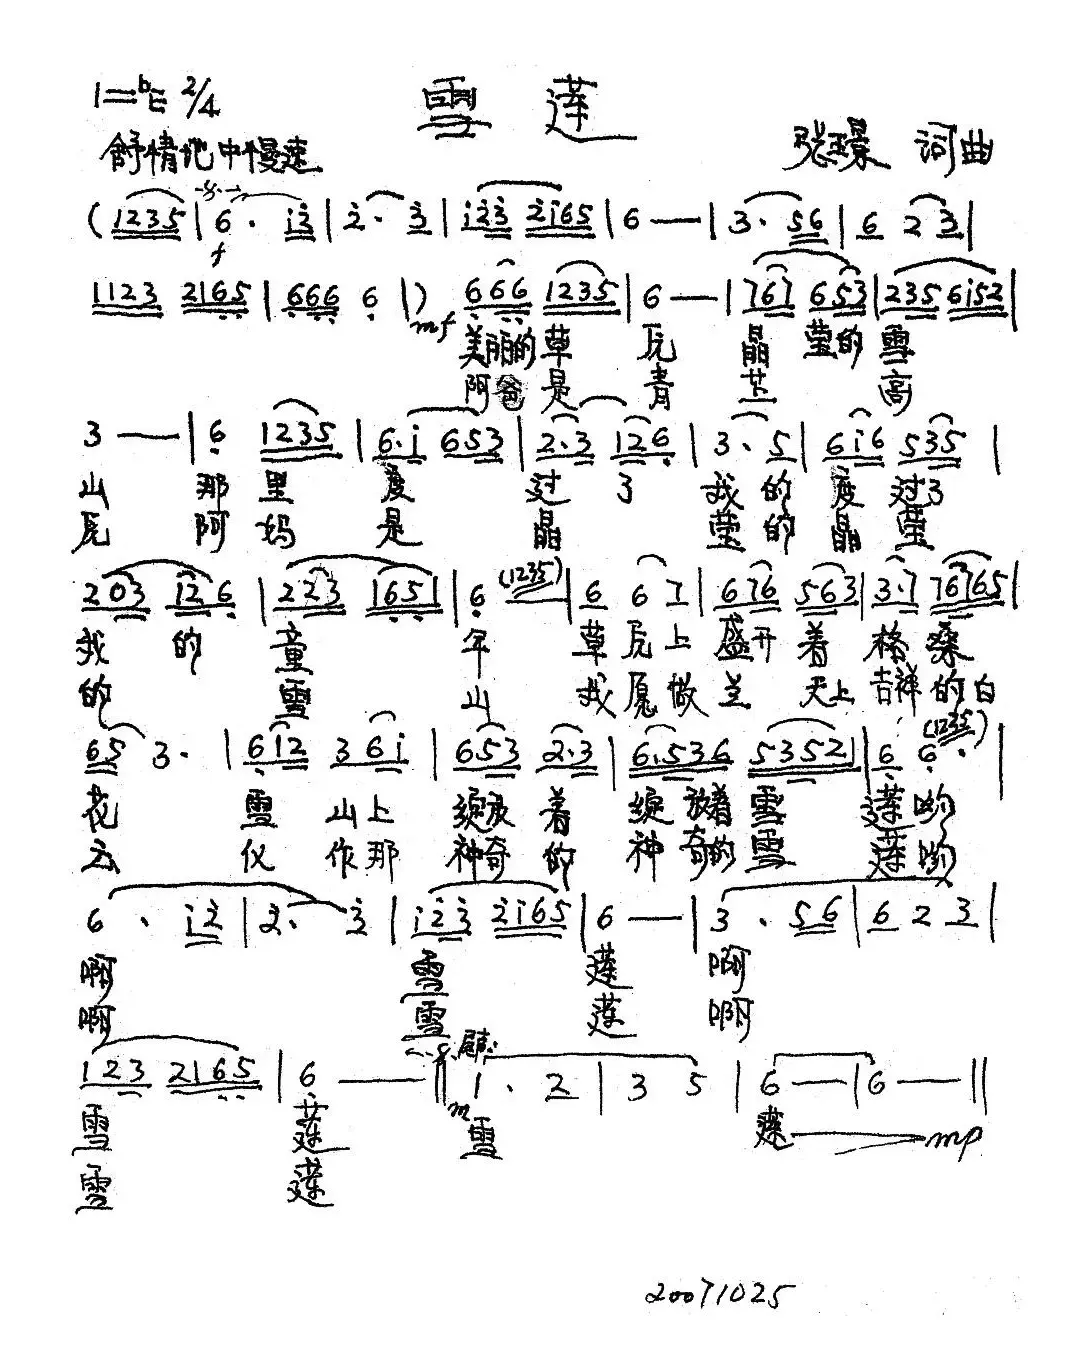 1=bE 2/4 雪 莲
舒情地中慢速 张璟 词曲
(1235 | 6 · i2 | 2 · 3 | i23 2i65 | 6 — | 3 · 56 | 6 2 3 |
f
1123 2165 | 666 6 | ) 666 1235 | 6 — | 767 653 | 235 6i52 |
mf
美丽的草 原 晶 莹的 雪
阿爸 是 青 芷 高
3 — | 6 1235 | 6·i 653 | 2·3 126 | 3 · 5 | 6i6 535 |
山 那 里 度 过 了 我 的 度 过了
原 阿 妈 是 晶 莹 的 晶 莹
203 126 | 223 1651 | 6 (1235) | 6 6 7 | 676 563 | 3·7 76765 |
我 的 童 年 草 原 上 盛开 着 格 桑
的 雪 山 我 愿 做 兰 天上 吉祥 的白
65 3· | 612 3 6i | 653 2·3 | 6·536 5352 | 6 6 · (1235) |
花 雪 山上 绽放 着 绽 放着 雪 莲 哟
云 仪 作那 神奇 的 神 奇的 雪 莲 哟
6 · i2 | 2 · 3 | i23 2i65 | 6 — | 3 · 56 | 6 2 3 |
啊 雪 莲 啊
啊 雪 莲 啊
尾声:
123 2165 | 6 — || 1 · 2 | 3 5 | 6 — | 6 — ||
m
雪 莲 雪 莲 mp
雪 莲
20071025